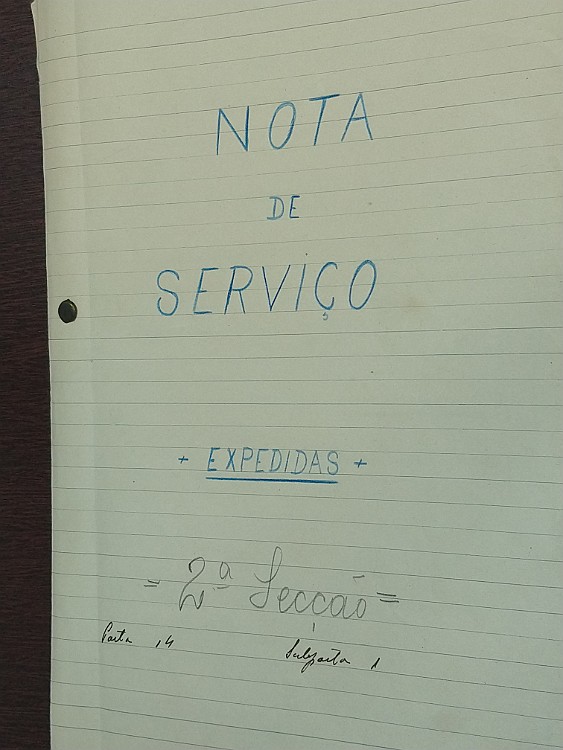 NOTA
DE
SERVIÇO
+ EXPEDIDAS +
= 2ª Secção =
Pasta 14
Subpasta 1